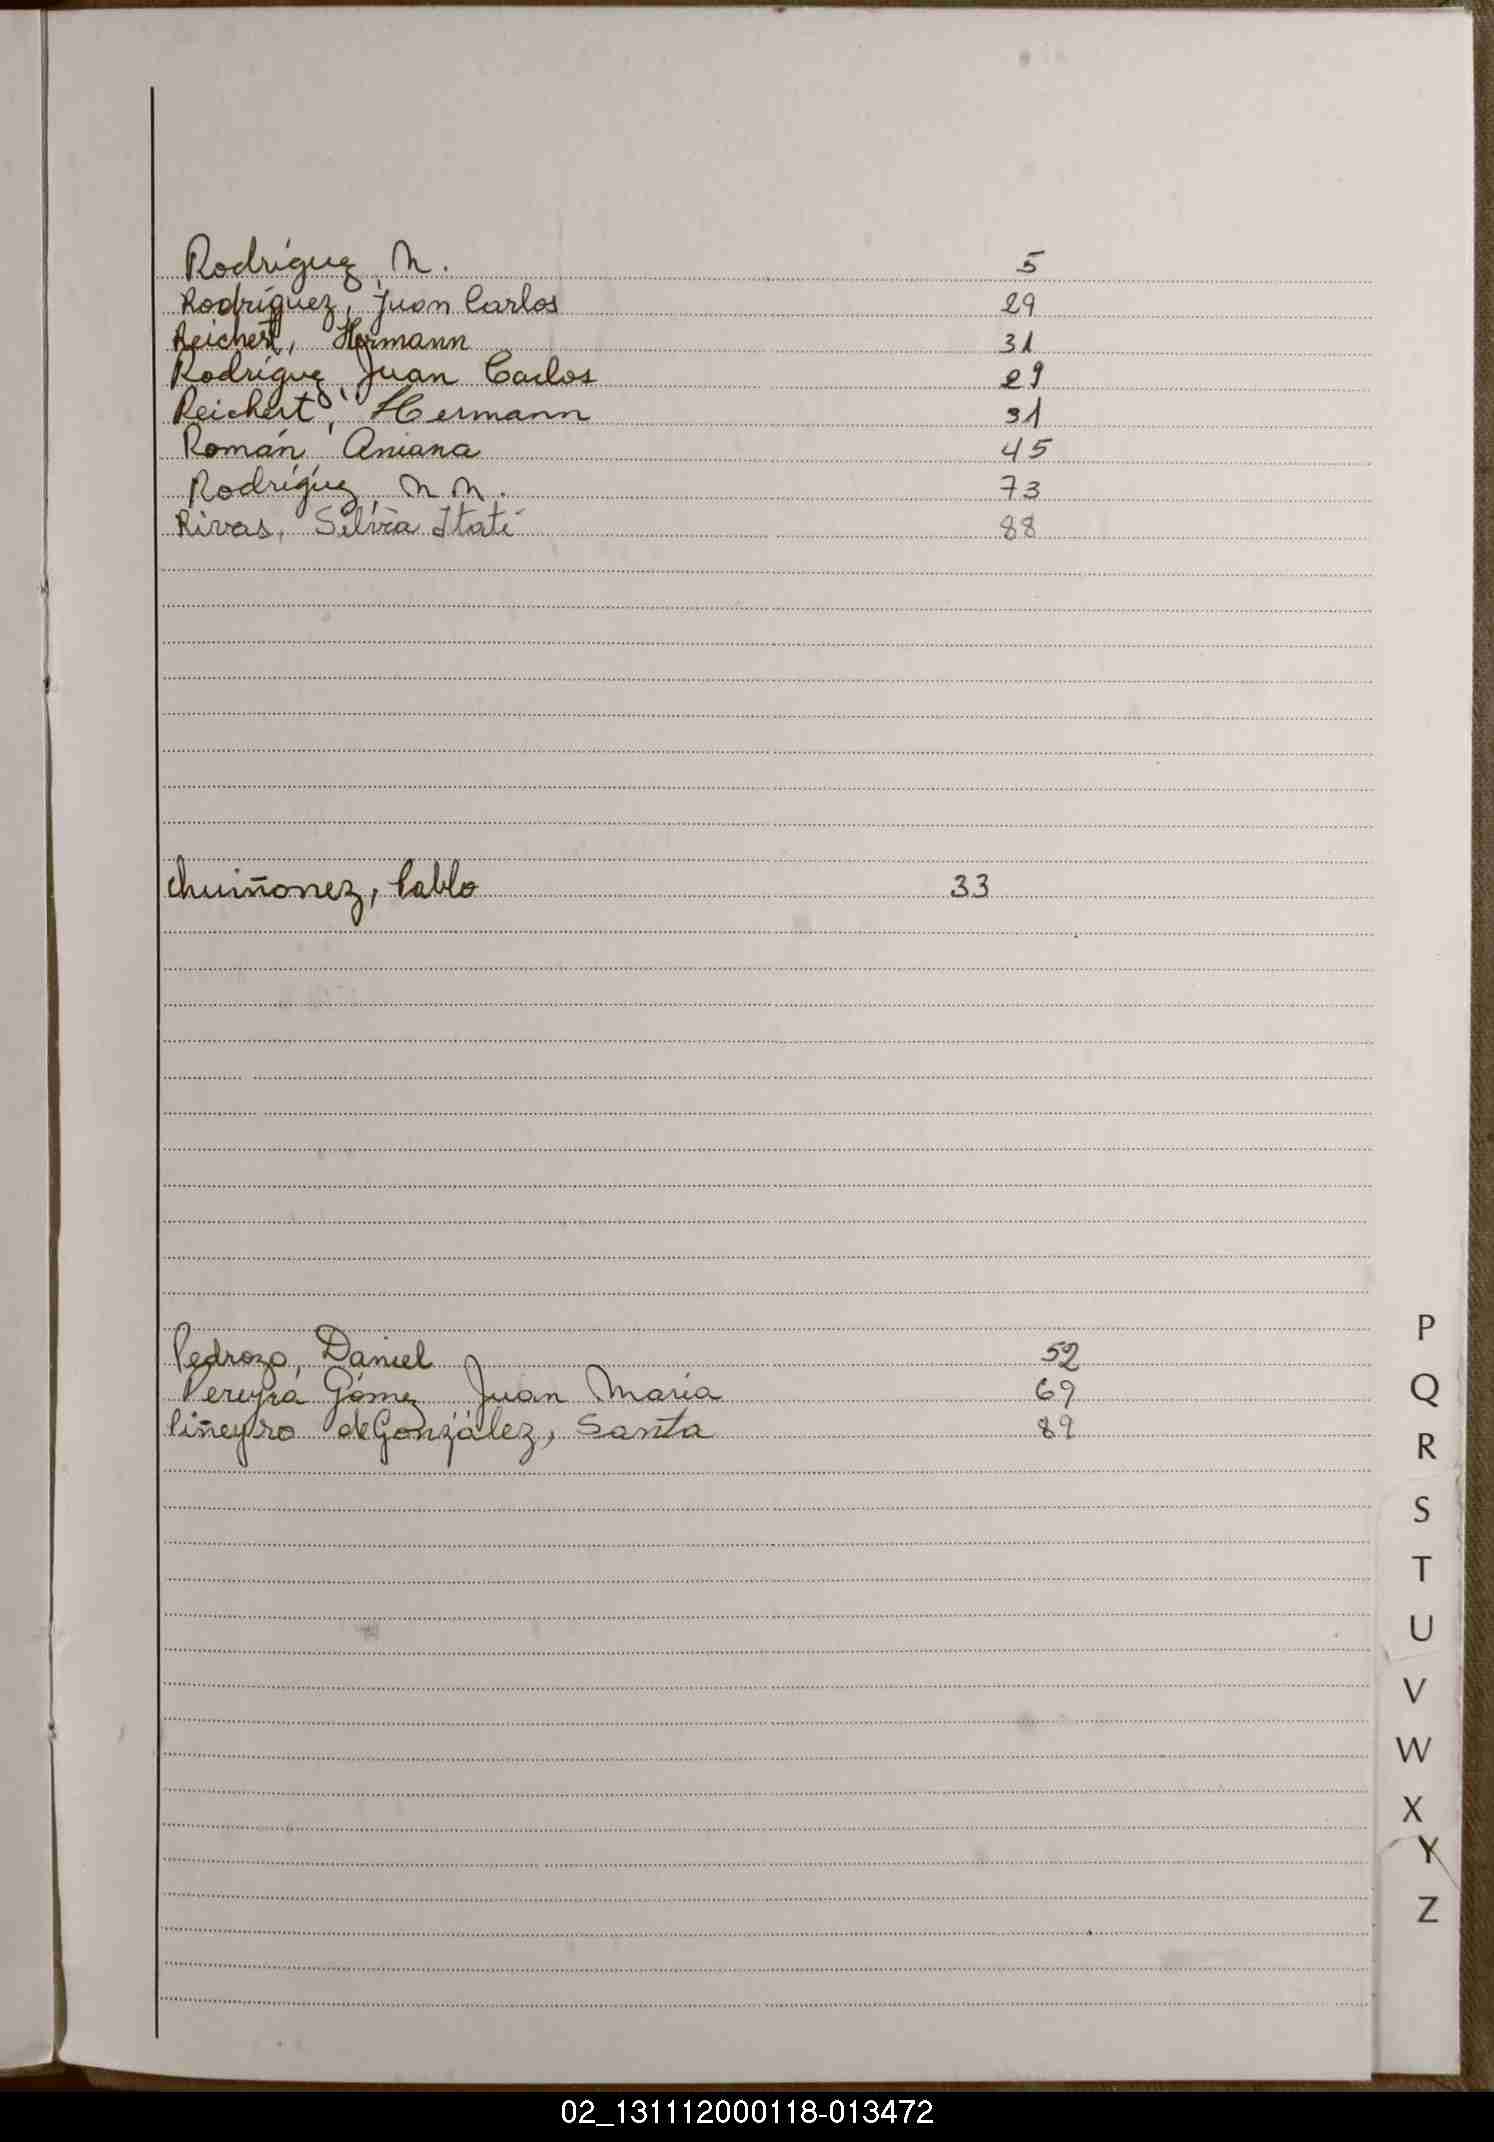 Rodríguez, N. 5
Rodríguez, Juan Carlos 29
Reichert, Hermann 31
Rodríguez, Juan Carlos 29
Reichert, Hermann 31
Román Aniana 45
Rodríguez, N N. 73
Rivas, Silvia Itatí 88
Chuiñonez, Pablo 33
Pedrozo, Daniel 52
Pereyra Gómez Juan María 69
Piñeyro de González, Santa 89
P
Q
R
S
T
U
V
W
X
Y
Z
02_131112000118-013472